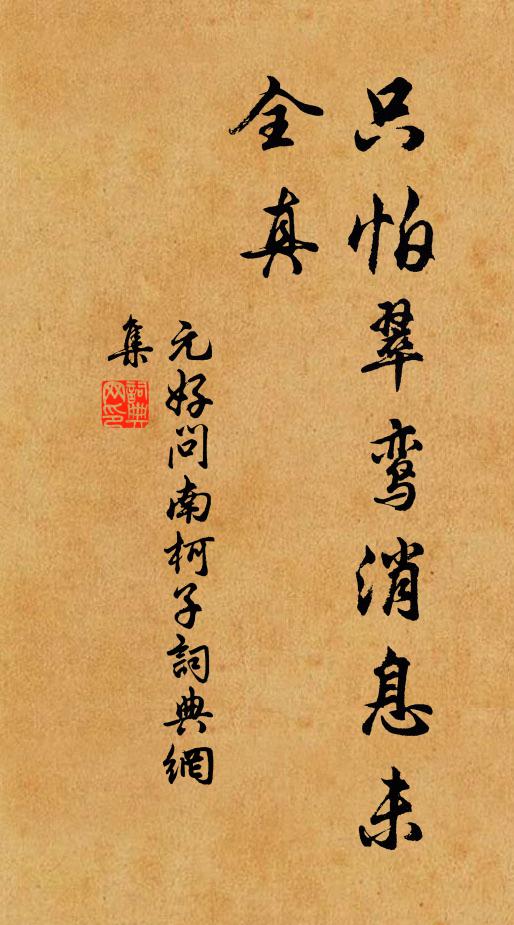 只怕翠鸾消息未
全真
元好问南柯子詞典網
集
詞典網印